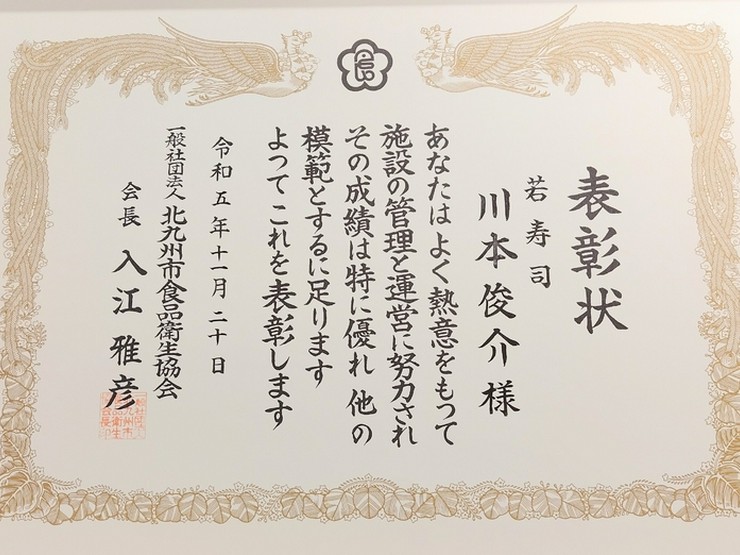 表彰状
若寿司
川本俊介様
あなたは よく熱意をもって
施設の管理と運営に努力され
その成績は特に優れ 他の
模範とするに足ります
よって これを表彰します
令和五年十一月二十日
一般社団法人 北九州市食品衛生協会
会長 入江雅彦